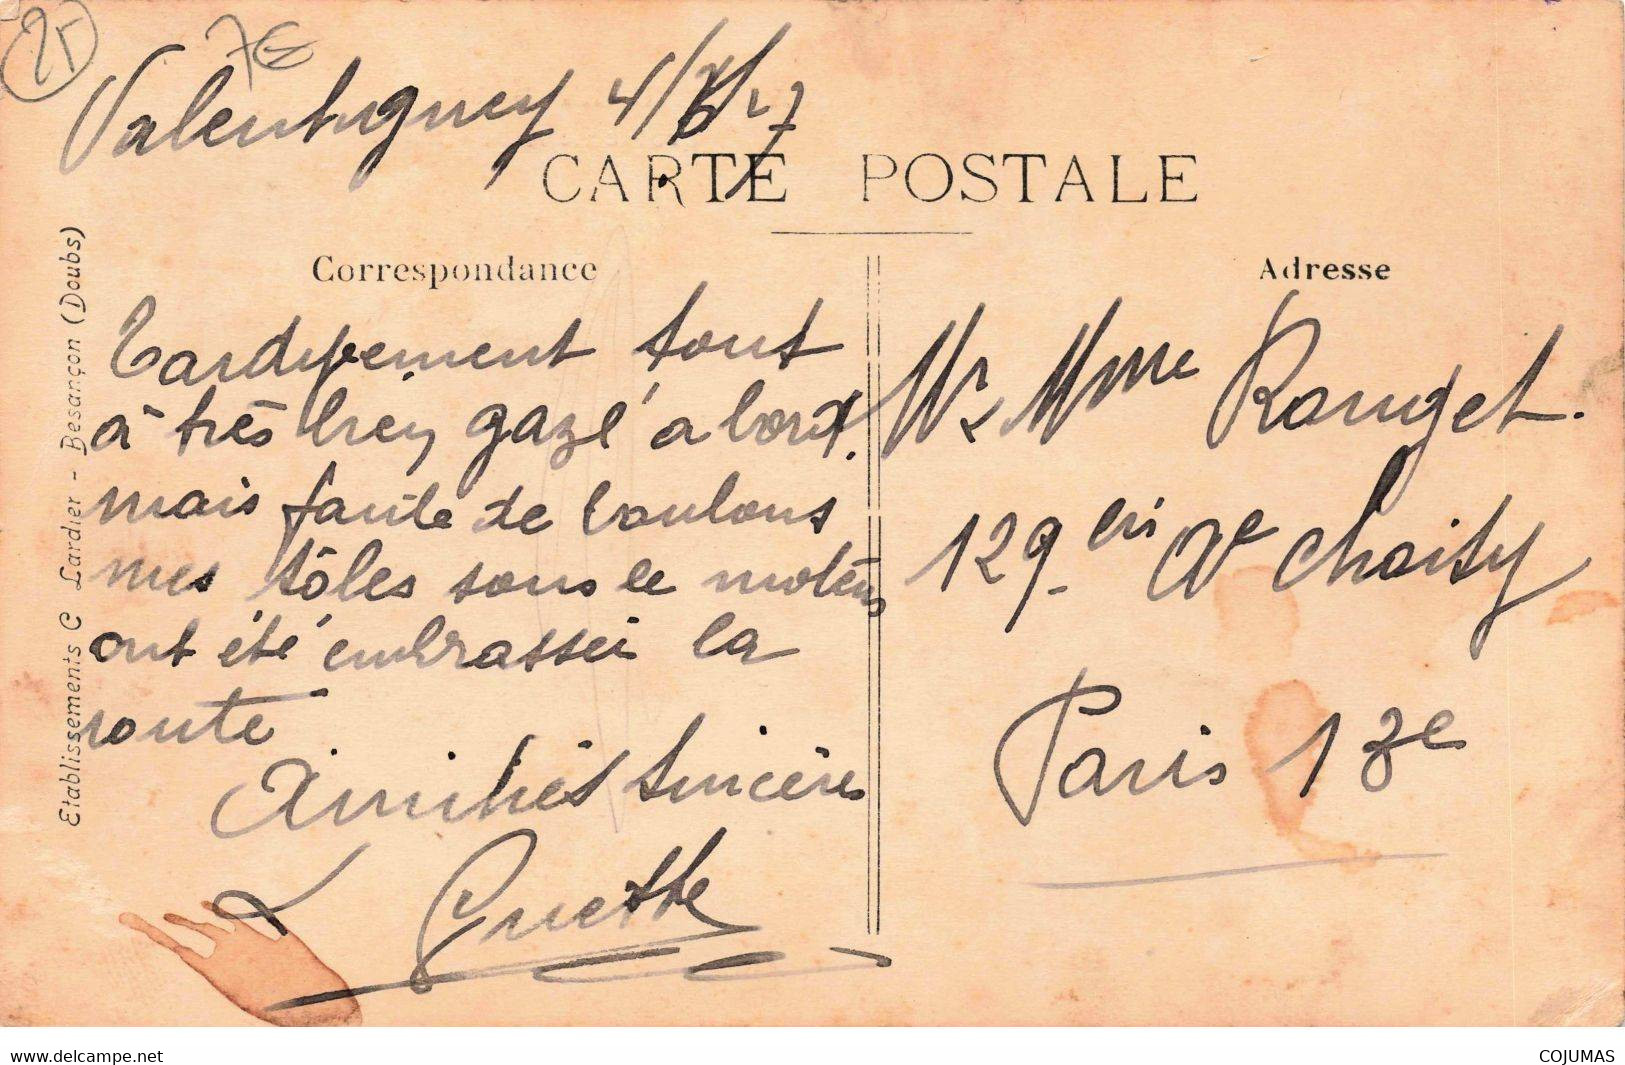 25
7€
Valentigney 4/8/27
CARTE POSTALE
Correspondance
Adresse
Tardivement tout
à très bien gazé à bord.
mais faute de boulons
mes tôles sous le moteur
ont été embrasser la
route
Amitiés Sincères
Mr Mme Rouget.
129 bis Ave Choisy
Paris 13e
Etablissements C Lardier - Besançon (Doubs)
www.delcampe.net
COJUMAS